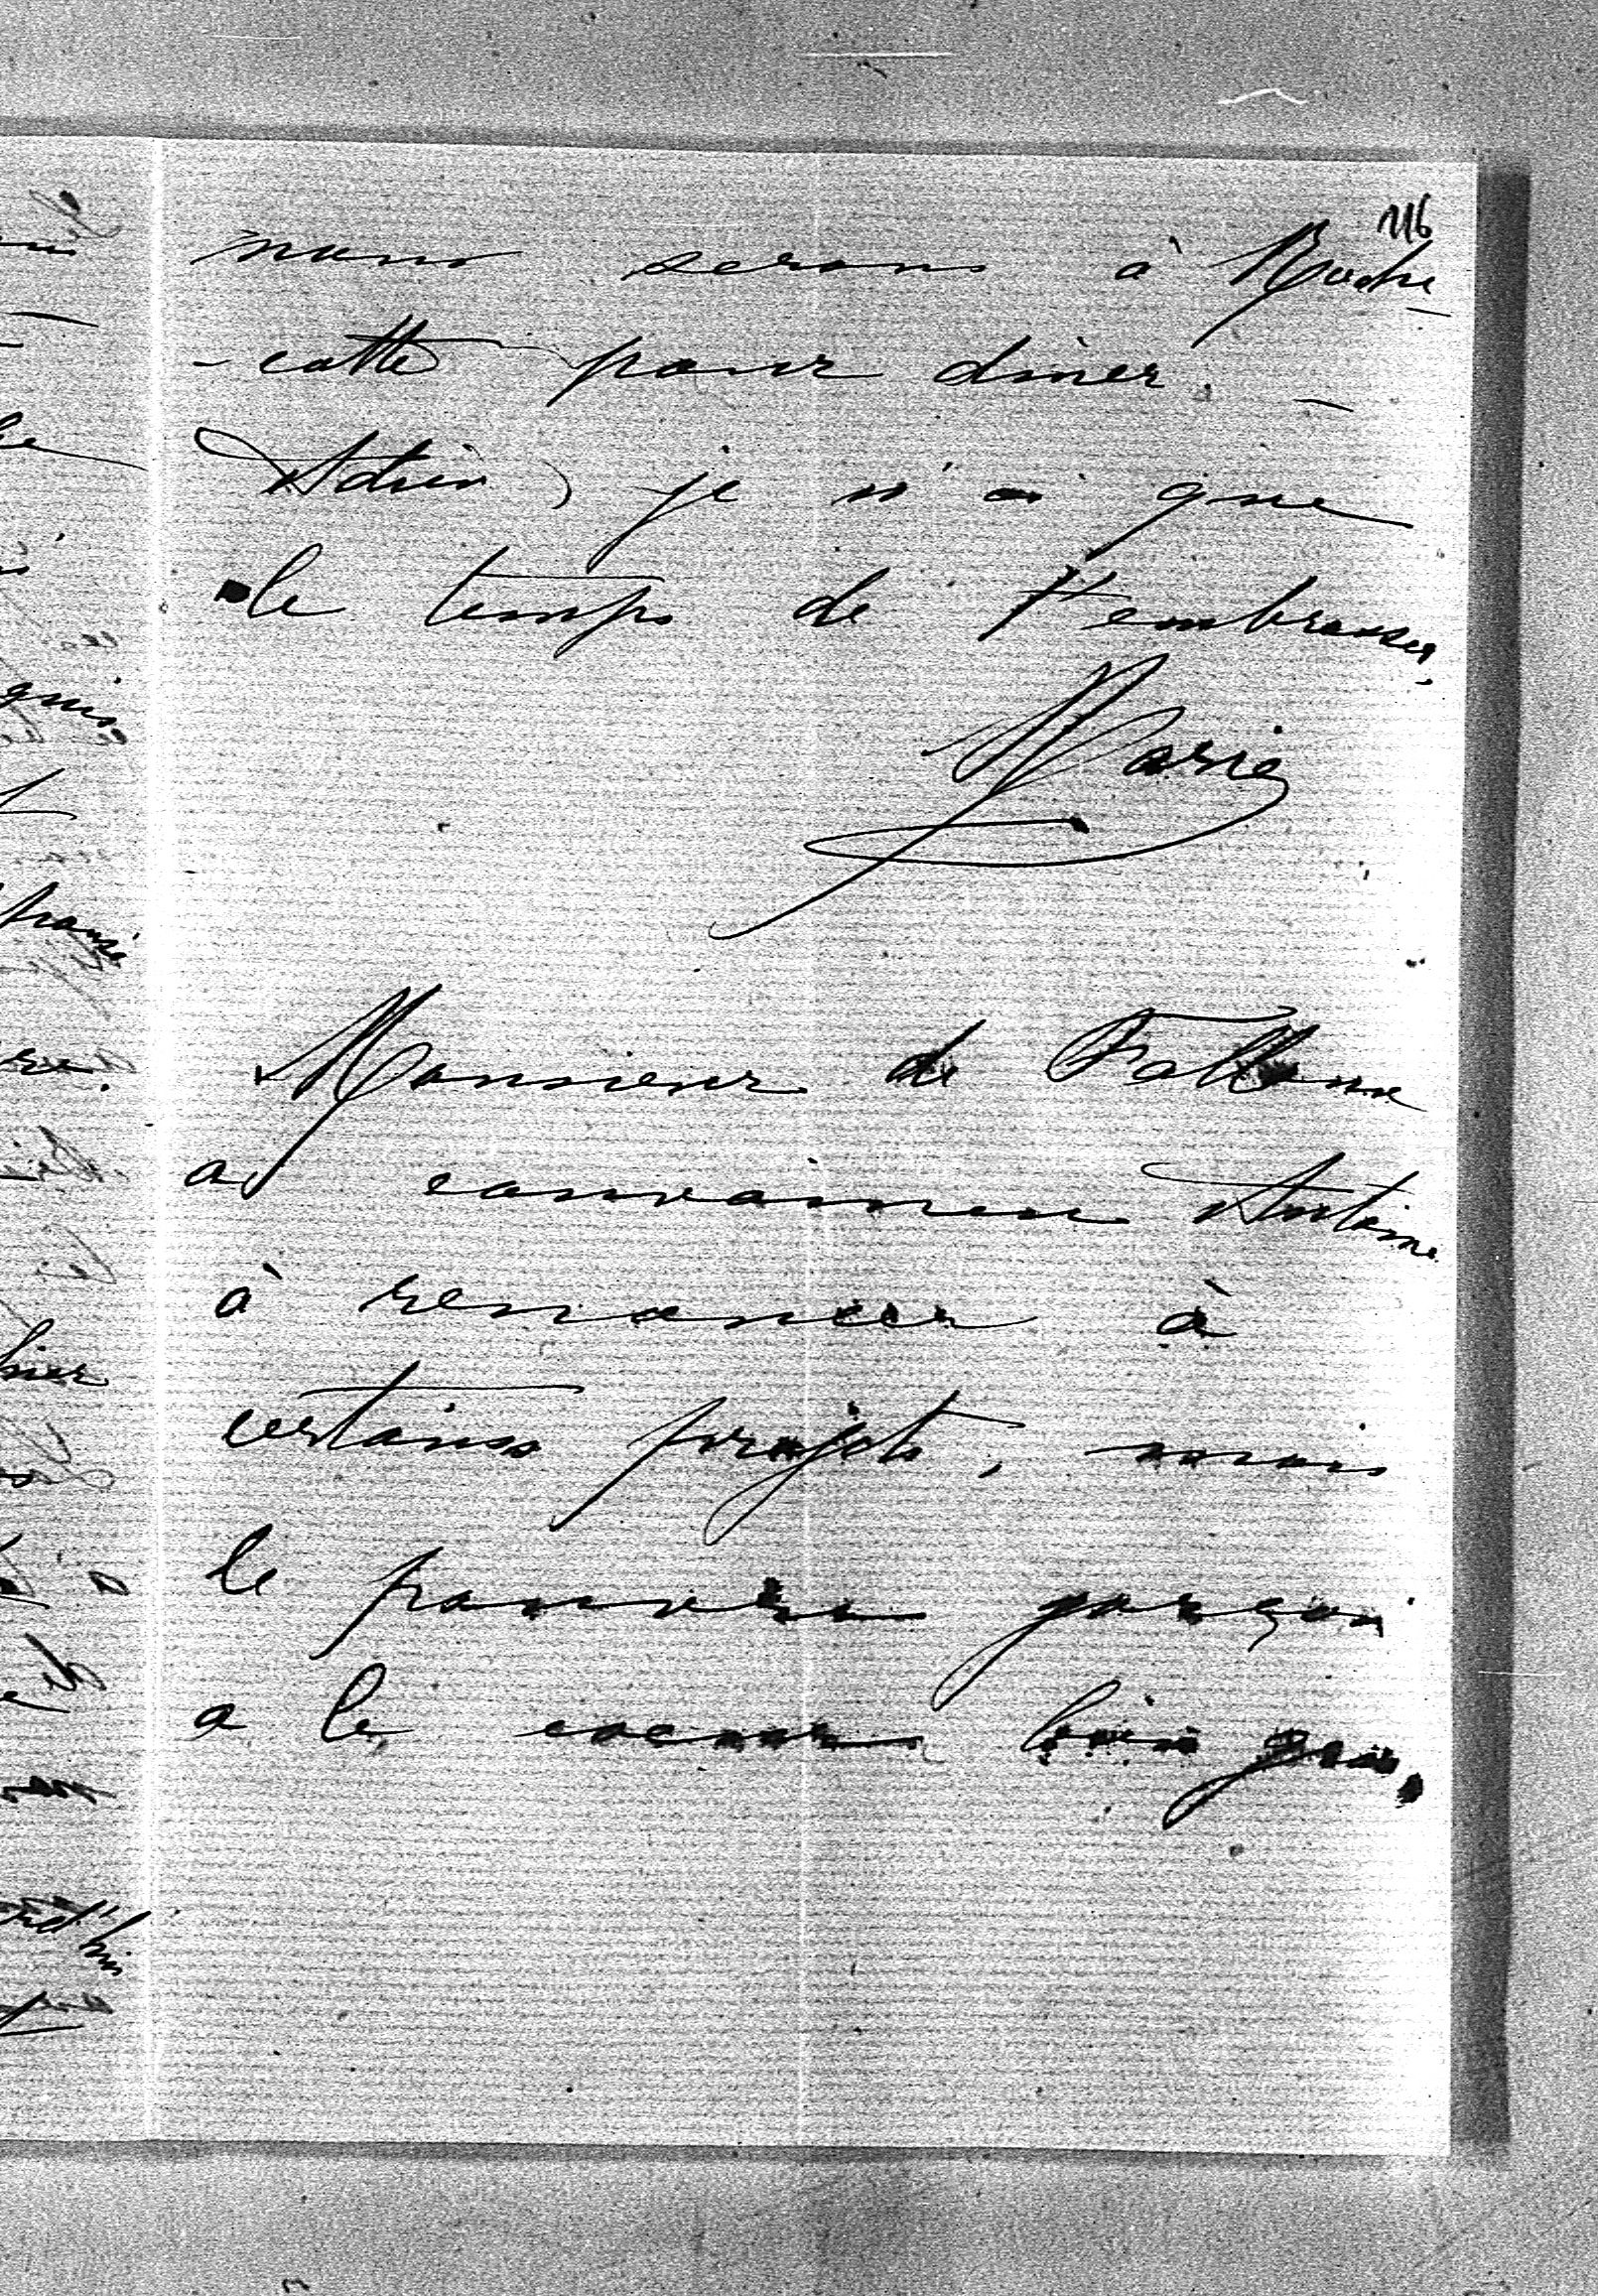 116
nous serons à Roche
-cotte pour diner. –
Adieu, je n'ai que
le temps de t'embrasser,
Marie
Monsieur de Falloux
a convaincu Antoine
à renoncer à
certains projets, mais
le pauvre garçon
a le coeur bien gros,